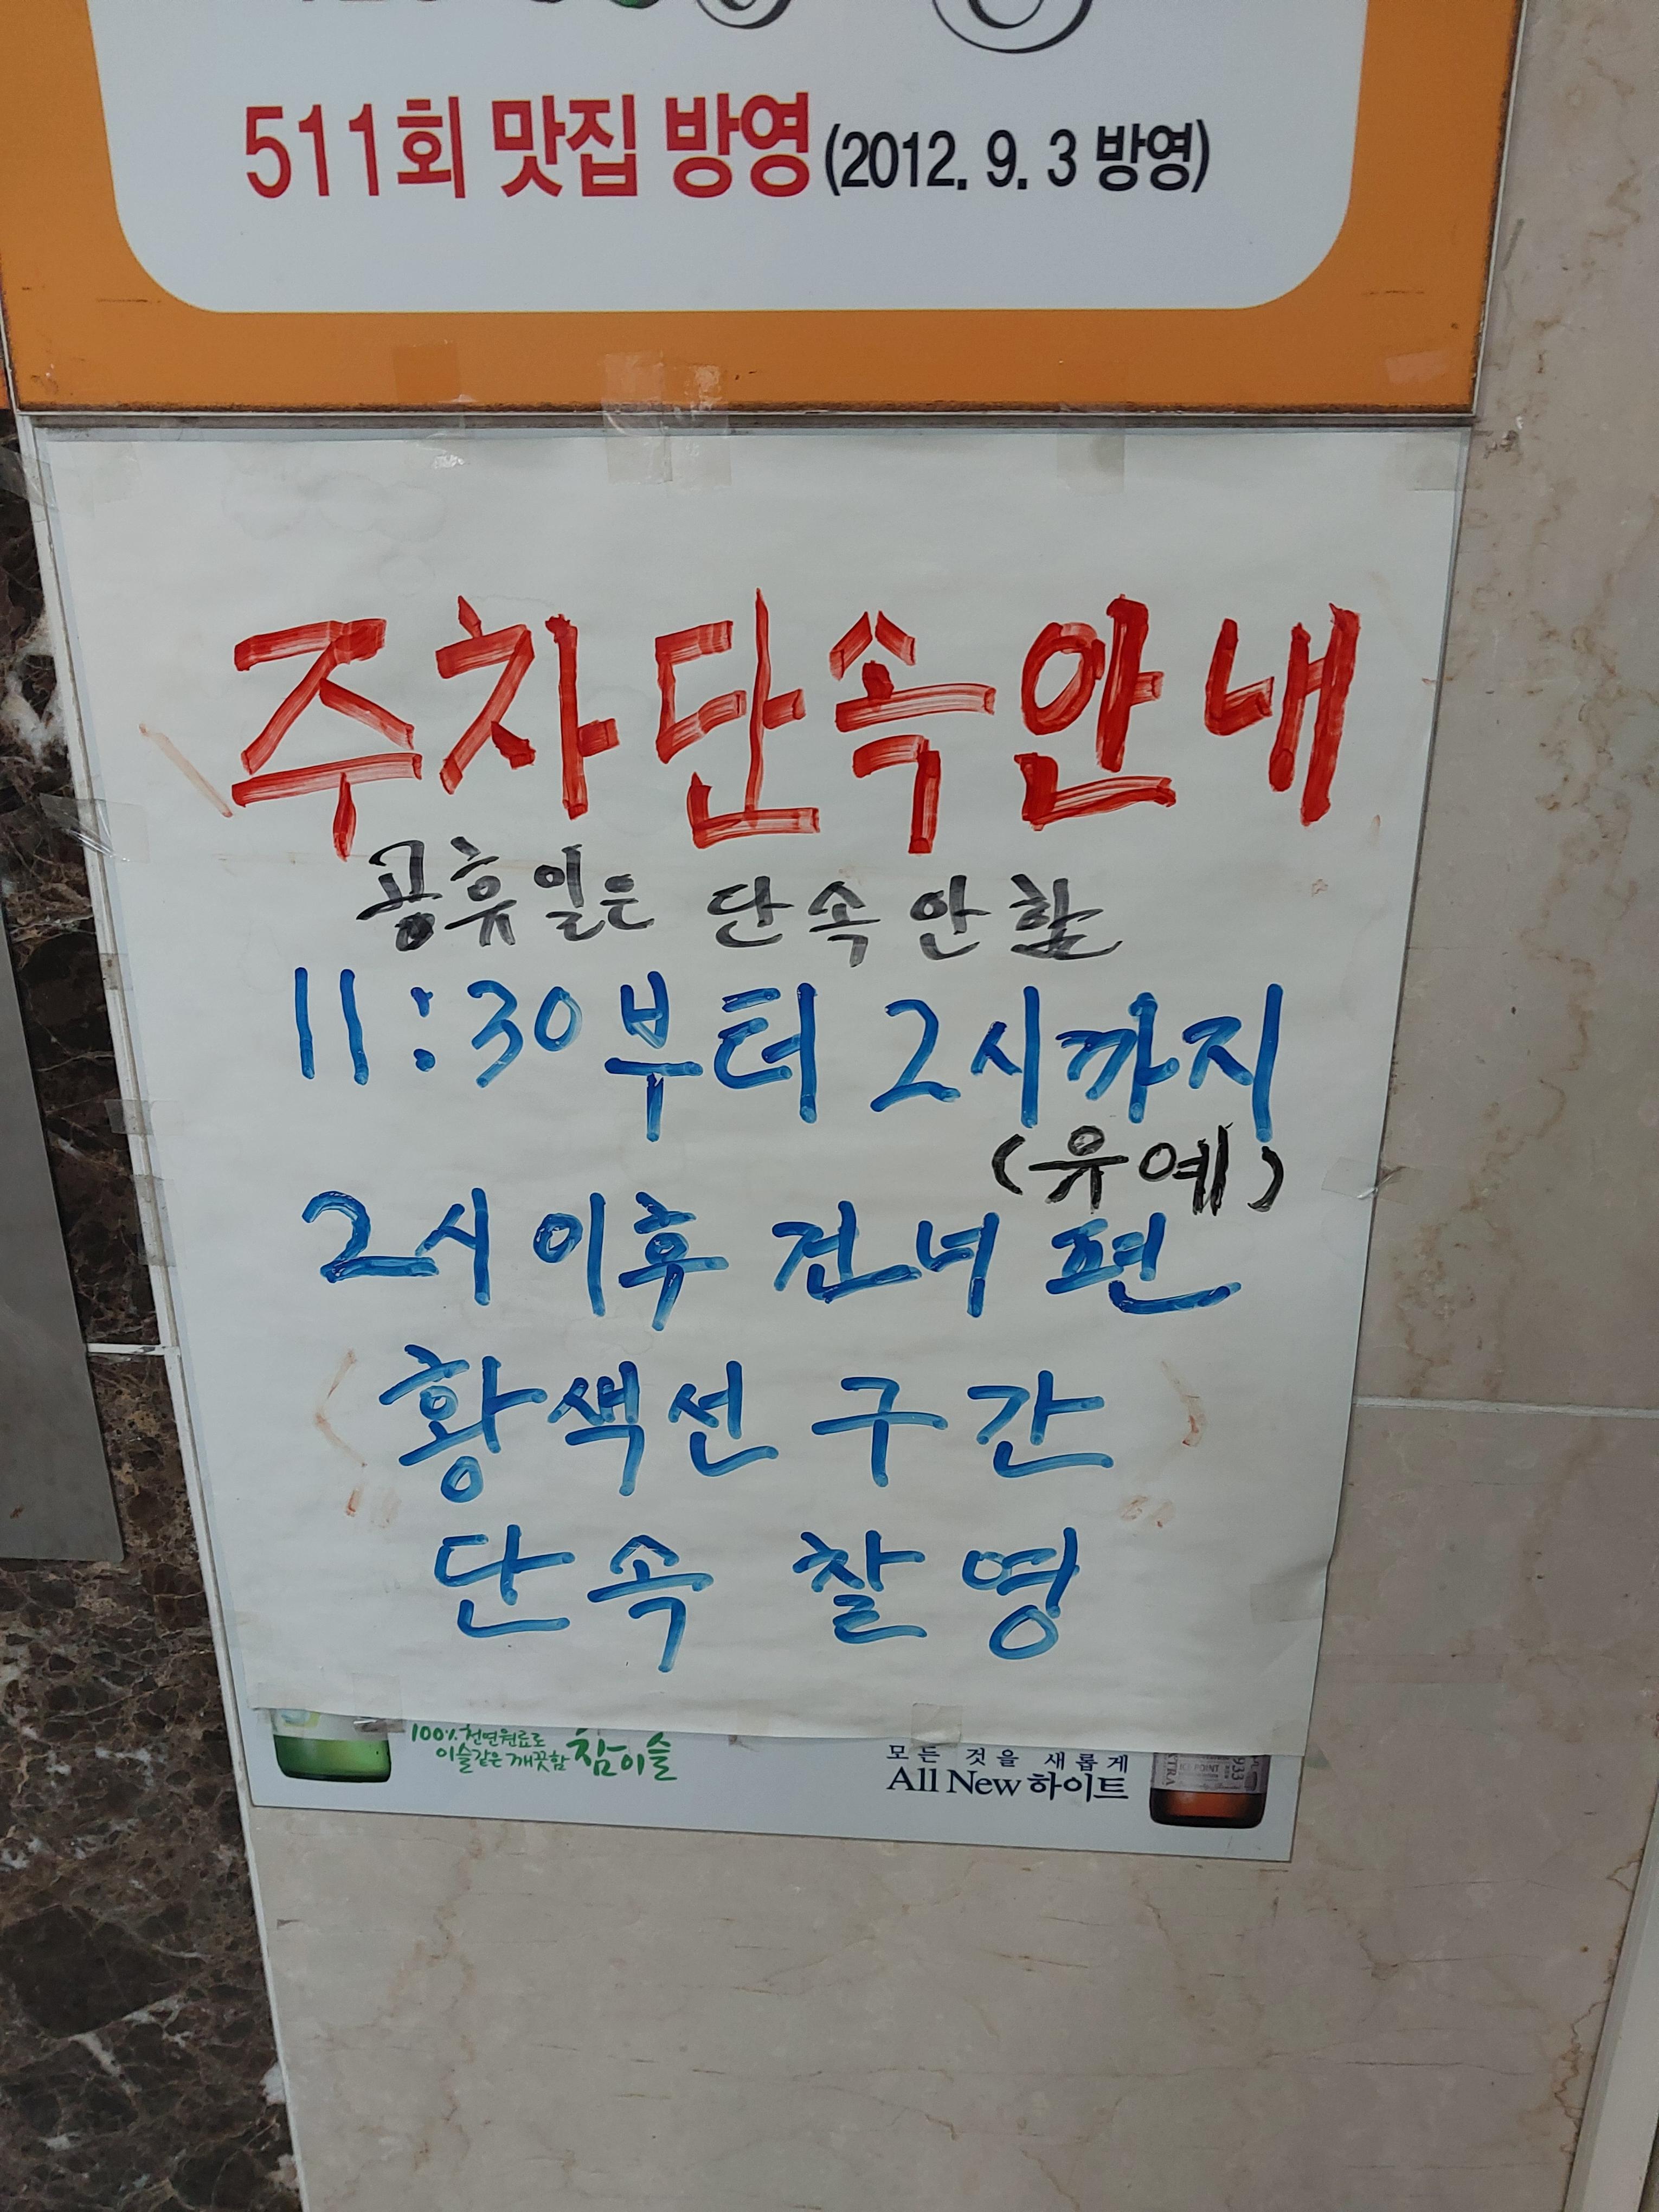 511회 맛집 방영(2012. 9. 3 방영)
주차단속안내
공휴일은 단속 안함
11:30부터 2시까지
(유예)
2시 이후 건너편
황색선 구간
단속 촬영
100% 천연원료로
이슬같은 깨끗함 참이슬
모든 것을 새롭게
All New 하이트